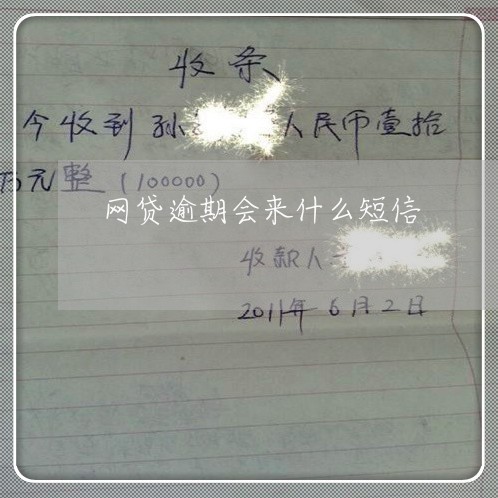 收条
今收到孙 人民币壹拾
万元整（100000）
网贷逾期会来什么短信
收款人
2011年6月2日